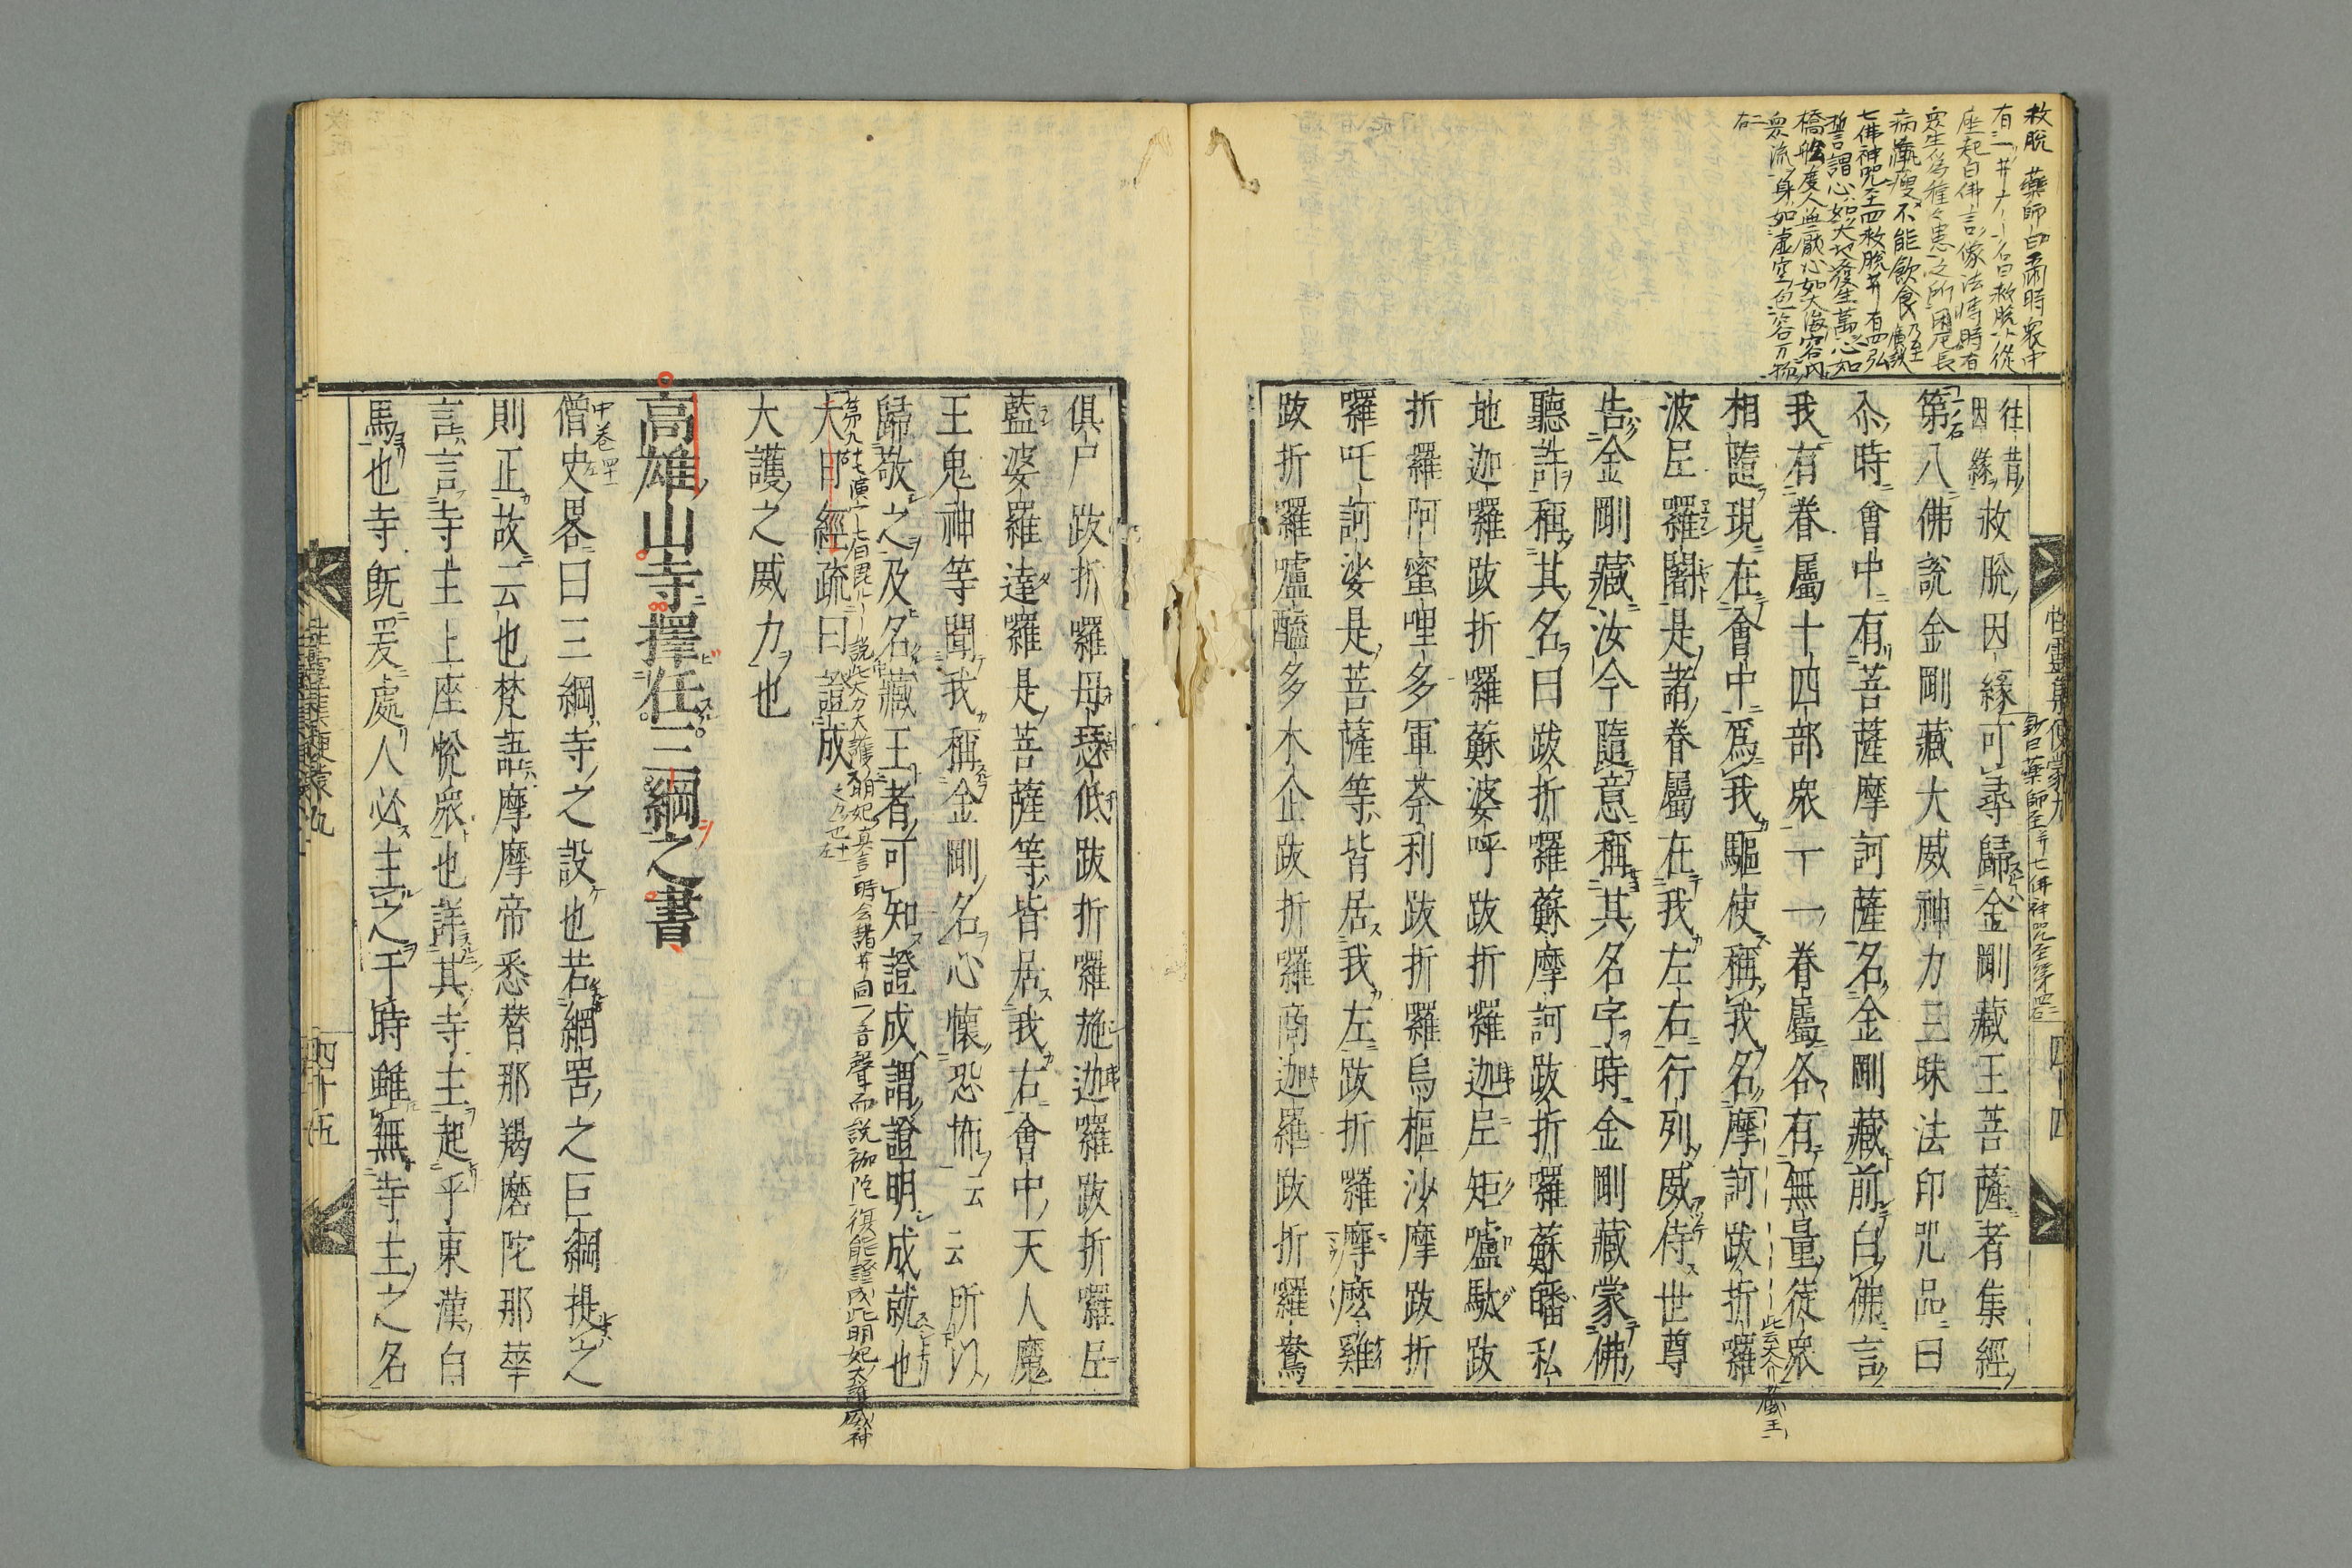 救脱 藥師曰爾時衆中
座起白佛言像法轉時有
衆生爲種々患之所困厄長
病羸瘦不能飲食乃至廣説
七佛神咒至四救脱菩有四弘
誓謂心如大地發生萬心如
橋舩度人無厭心如大海容内
衆流身如虚空包容万物
性靈集便蒙九
四十四
往昔因緣救脱因緣可尋歸金剛藏王菩薩者集經
第八佛説金剛藏大威神力三昧法印咒品曰
尒時會中有菩薩摩訶薩名金剛藏前白佛言
我有眷屬十四部衆一一眷屬各有無量徒衆
相隨現在會中爲我驅使稱我名摩訶跋折囉
波𡰱囉闍是諸眷屬在我左右行列威侍世尊
告金剛藏汝今隨意稱其名字時金剛藏蒙佛
聽許稱其名曰跋折囉蘇摩訶跋折囉蘇皤私
地迦囉跋折囉蘇婆呼跋折囉迦𡰱矩嚧馱跋
折囉阿蜜哩多軍荼利跋折囉烏樞沙摩跋折
囉吒訶娑是菩薩等皆居我左跋折囉摩麽雞
跋折囉嚧醯多木企跋折囉商迦羅跋折囉鴦
俱尸跋折囉母瑟低跋折囉施迦囉跋折囉𡰱
藍婆羅達囉是菩薩等皆居我右會中天人魔
王鬼神等聞我稱金剛名心懷恐怖云云所以
歸敬之及名藏王者可知證成謂證明成就也
説此大力大護明妃真言時会諸菩同一音聲而説伽陀復能證成此明妃大護威神
大日經疏曰證成
大護之威力也
高雄山寺擇任三綱之書
中卷四十一左
僧史畧曰三綱寺之設也若網罟之巨綱提之
則正故云也梵語摩摩帝悉替那羯磨陀那華
言言寺主上座悦衆也詳其寺主起乎東漢白
馬也寺既爰處人必主之于時雖無寺主之名
四十五